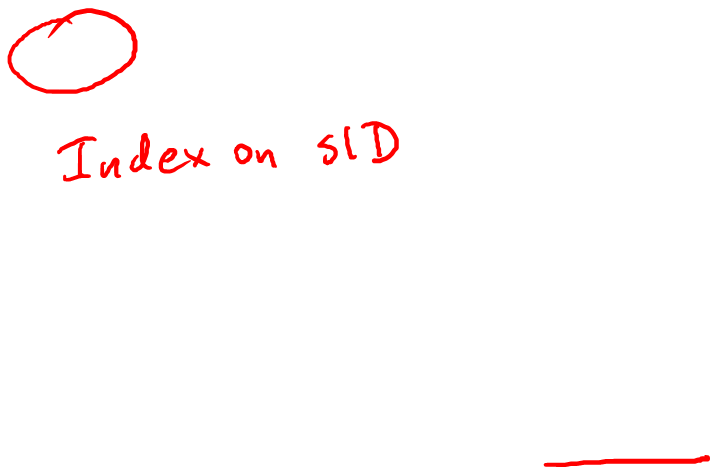 Index on sID